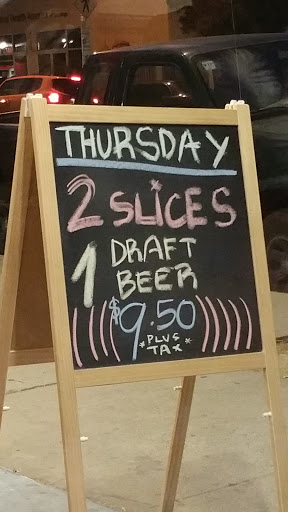 THURSDAY
2 SLICES
1 DRAFT BEER
$9.50
*PLUS TAX*